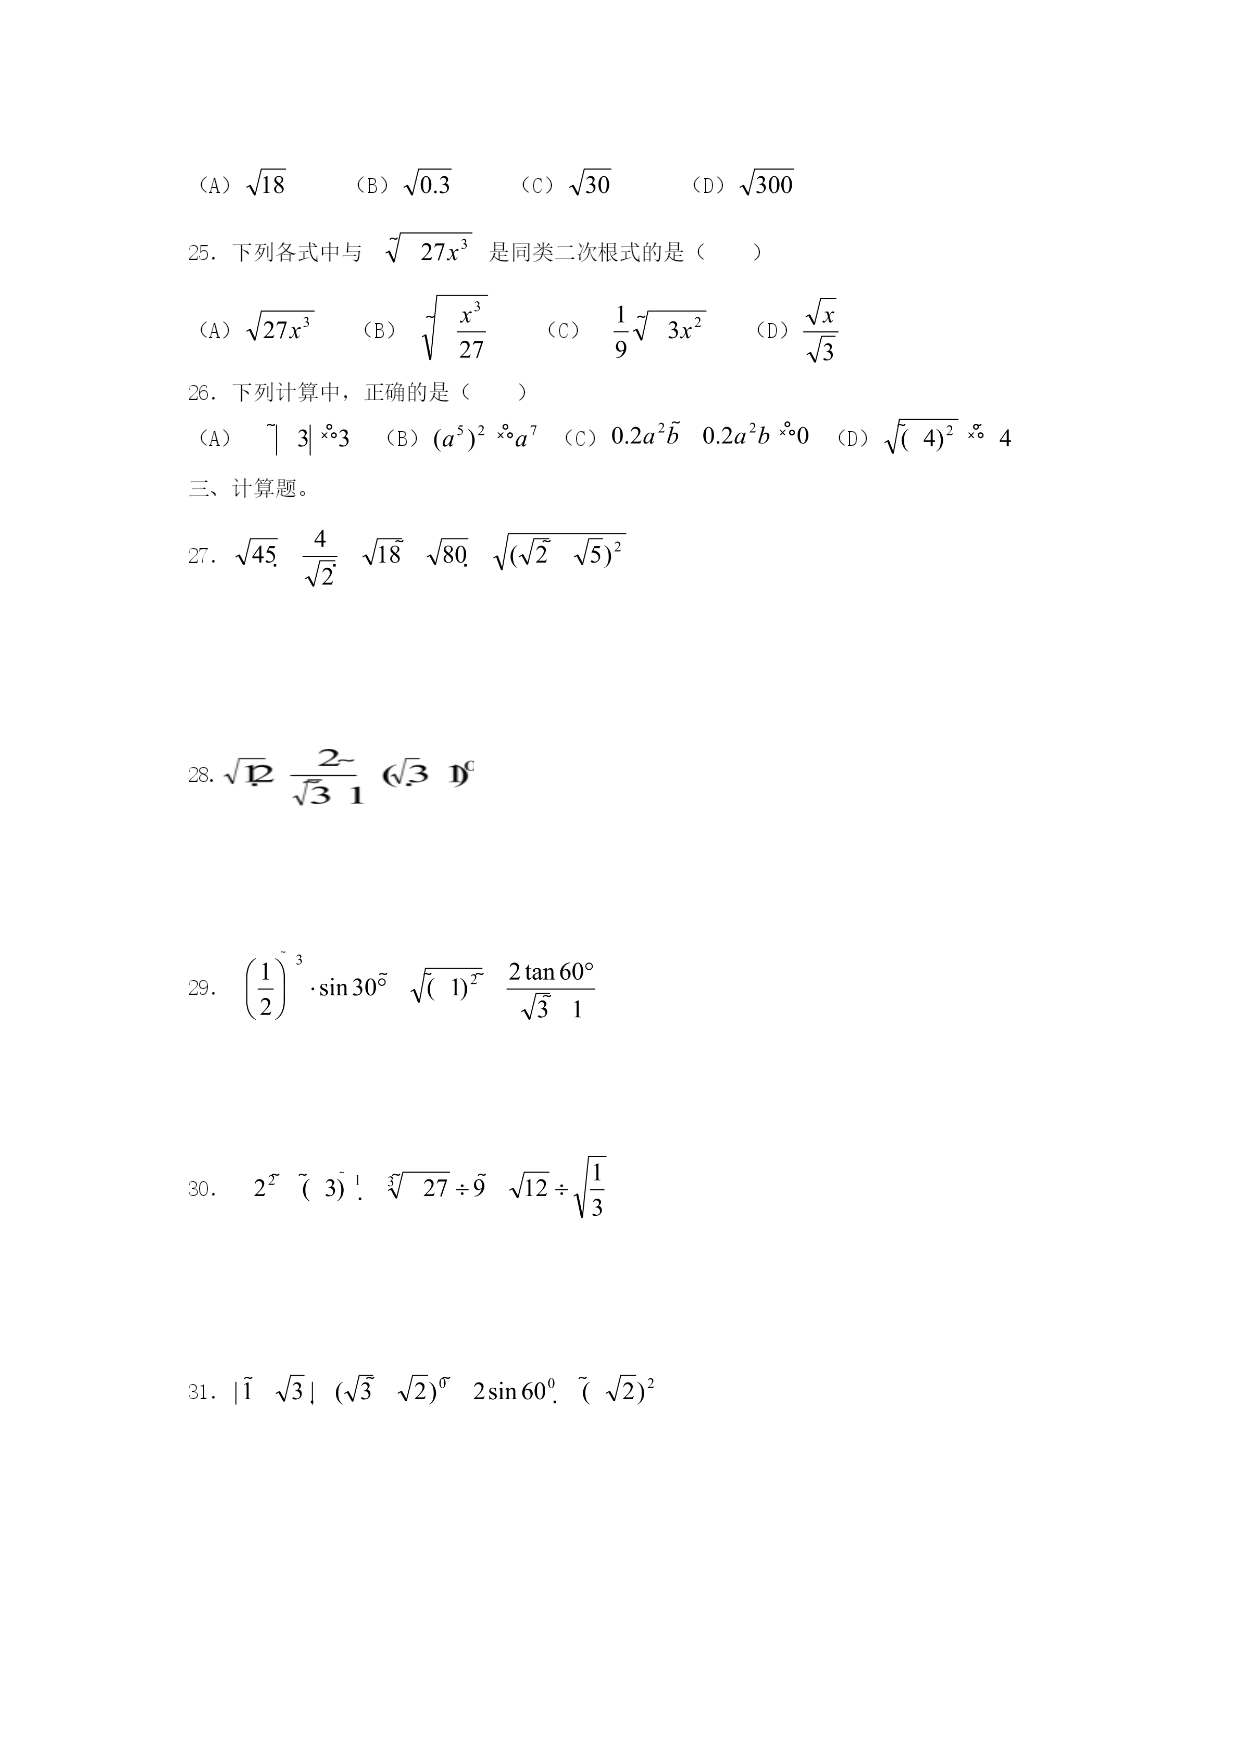 （A）√18 （B）√0.3 （C）√30 （D）√300
25．下列各式中与 √(~27x³) 是同类二次根式的是（ ）
（A）√(27x³) （B）√(~x³/27) （C）1/9√(~3x²) （D）√x/√3
26．下列计算中，正确的是（ ）
（A）~|~3| 3 （B）(a⁵)² a⁷ （C）0.2a²b ~ 0.2a²b 0 （D）√((~4)²) 4
三、计算题。
27．√45 . 4/√2 . √18 ~ √80 . √((√2 ~ √5)²)
28. √12 . 2/(√3 ~ 1) ~ (√3 . 1)⁰
29． (1/2)^(~3) · sin30° ~ √((~1)²) ~ 2tan60°/(√3 ~ 1)
30． 2² ~ (~3)^(~1) . ³√(~27) ÷ 9 ~ √12 ÷ √(1/3)
31．|1 ~ √3| . (√3 ~ √2)⁰ ~ 2sin60⁰ . (~√2)²